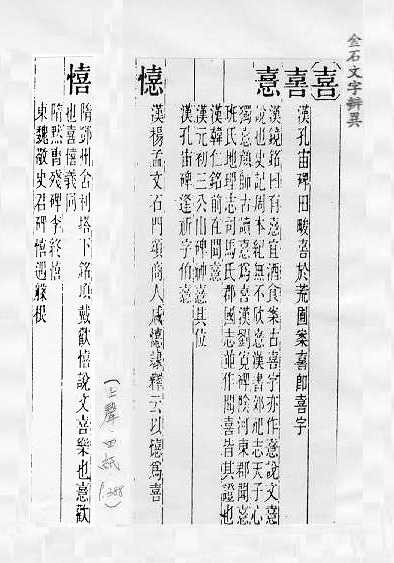 金石文字辨異
〔喜〕
喜
漢孔宙碑田畯喜於荒圃案喜卽喜字
憙
漢鏡銘曰有憙宜酒食案古喜字亦作憙說文憙
說也史記周本紀無不欣憙漢書郊祀志天子心
獨憙顏師古讀憙爲喜漢劉寬碑陰河東郡聞憙
班氏地理志司馬氏郡國志並作聞喜皆其證也
漢韓仁銘前在聞憙
漢元初三公山碑神憙其位
漢孔宙碑逢祈字伯憙
憘
漢楊孟文石門頌商人咸憘隸釋云以憘爲喜
憘
隋鄧州舍利塔下銘頂戴歡憘說文喜樂也憙歡
也喜憘義同
隋 曹殘碑李終憘
東魏敬史君碑憘遇 根
(上聲四紙 P.388)